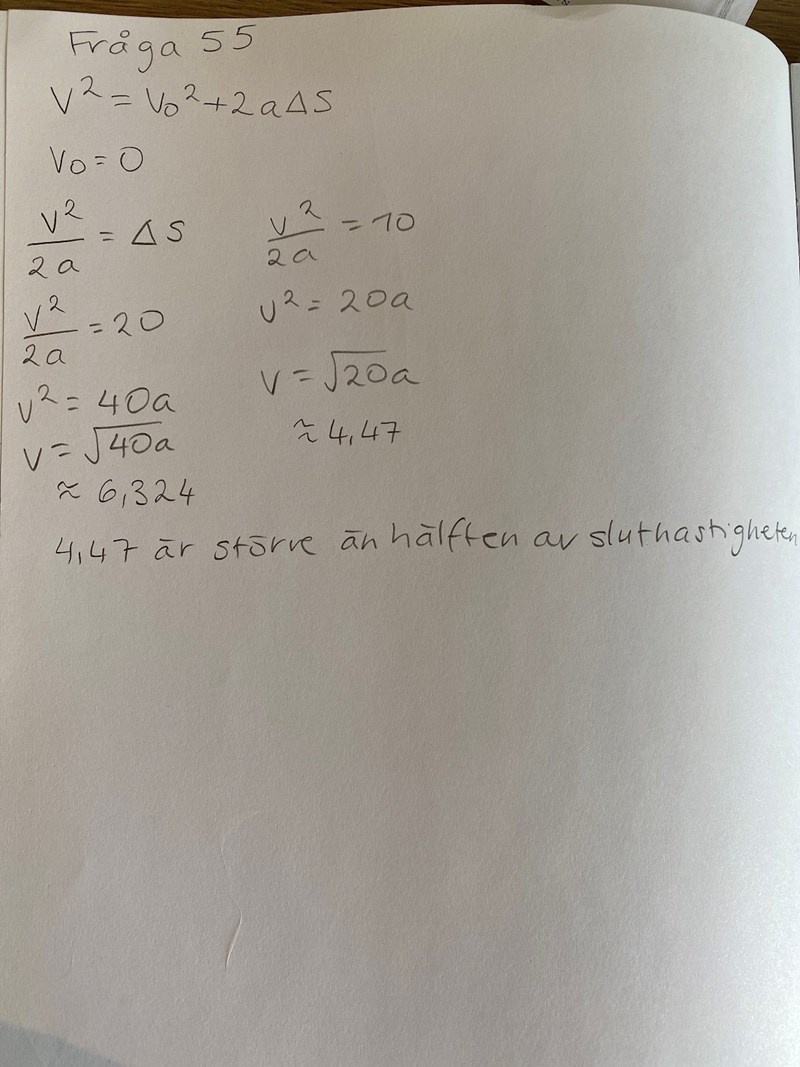 Fråga 55
V² = V₀² + 2aΔS
V₀ = 0
V²/2a = ΔS
V²/2a = 20
V² = 40a
V = √40a
≈ 6,324
V²/2a = 10
V² = 20a
V = √20a
≈ 4,47
4,47 är större än hälften av sluthastigheten